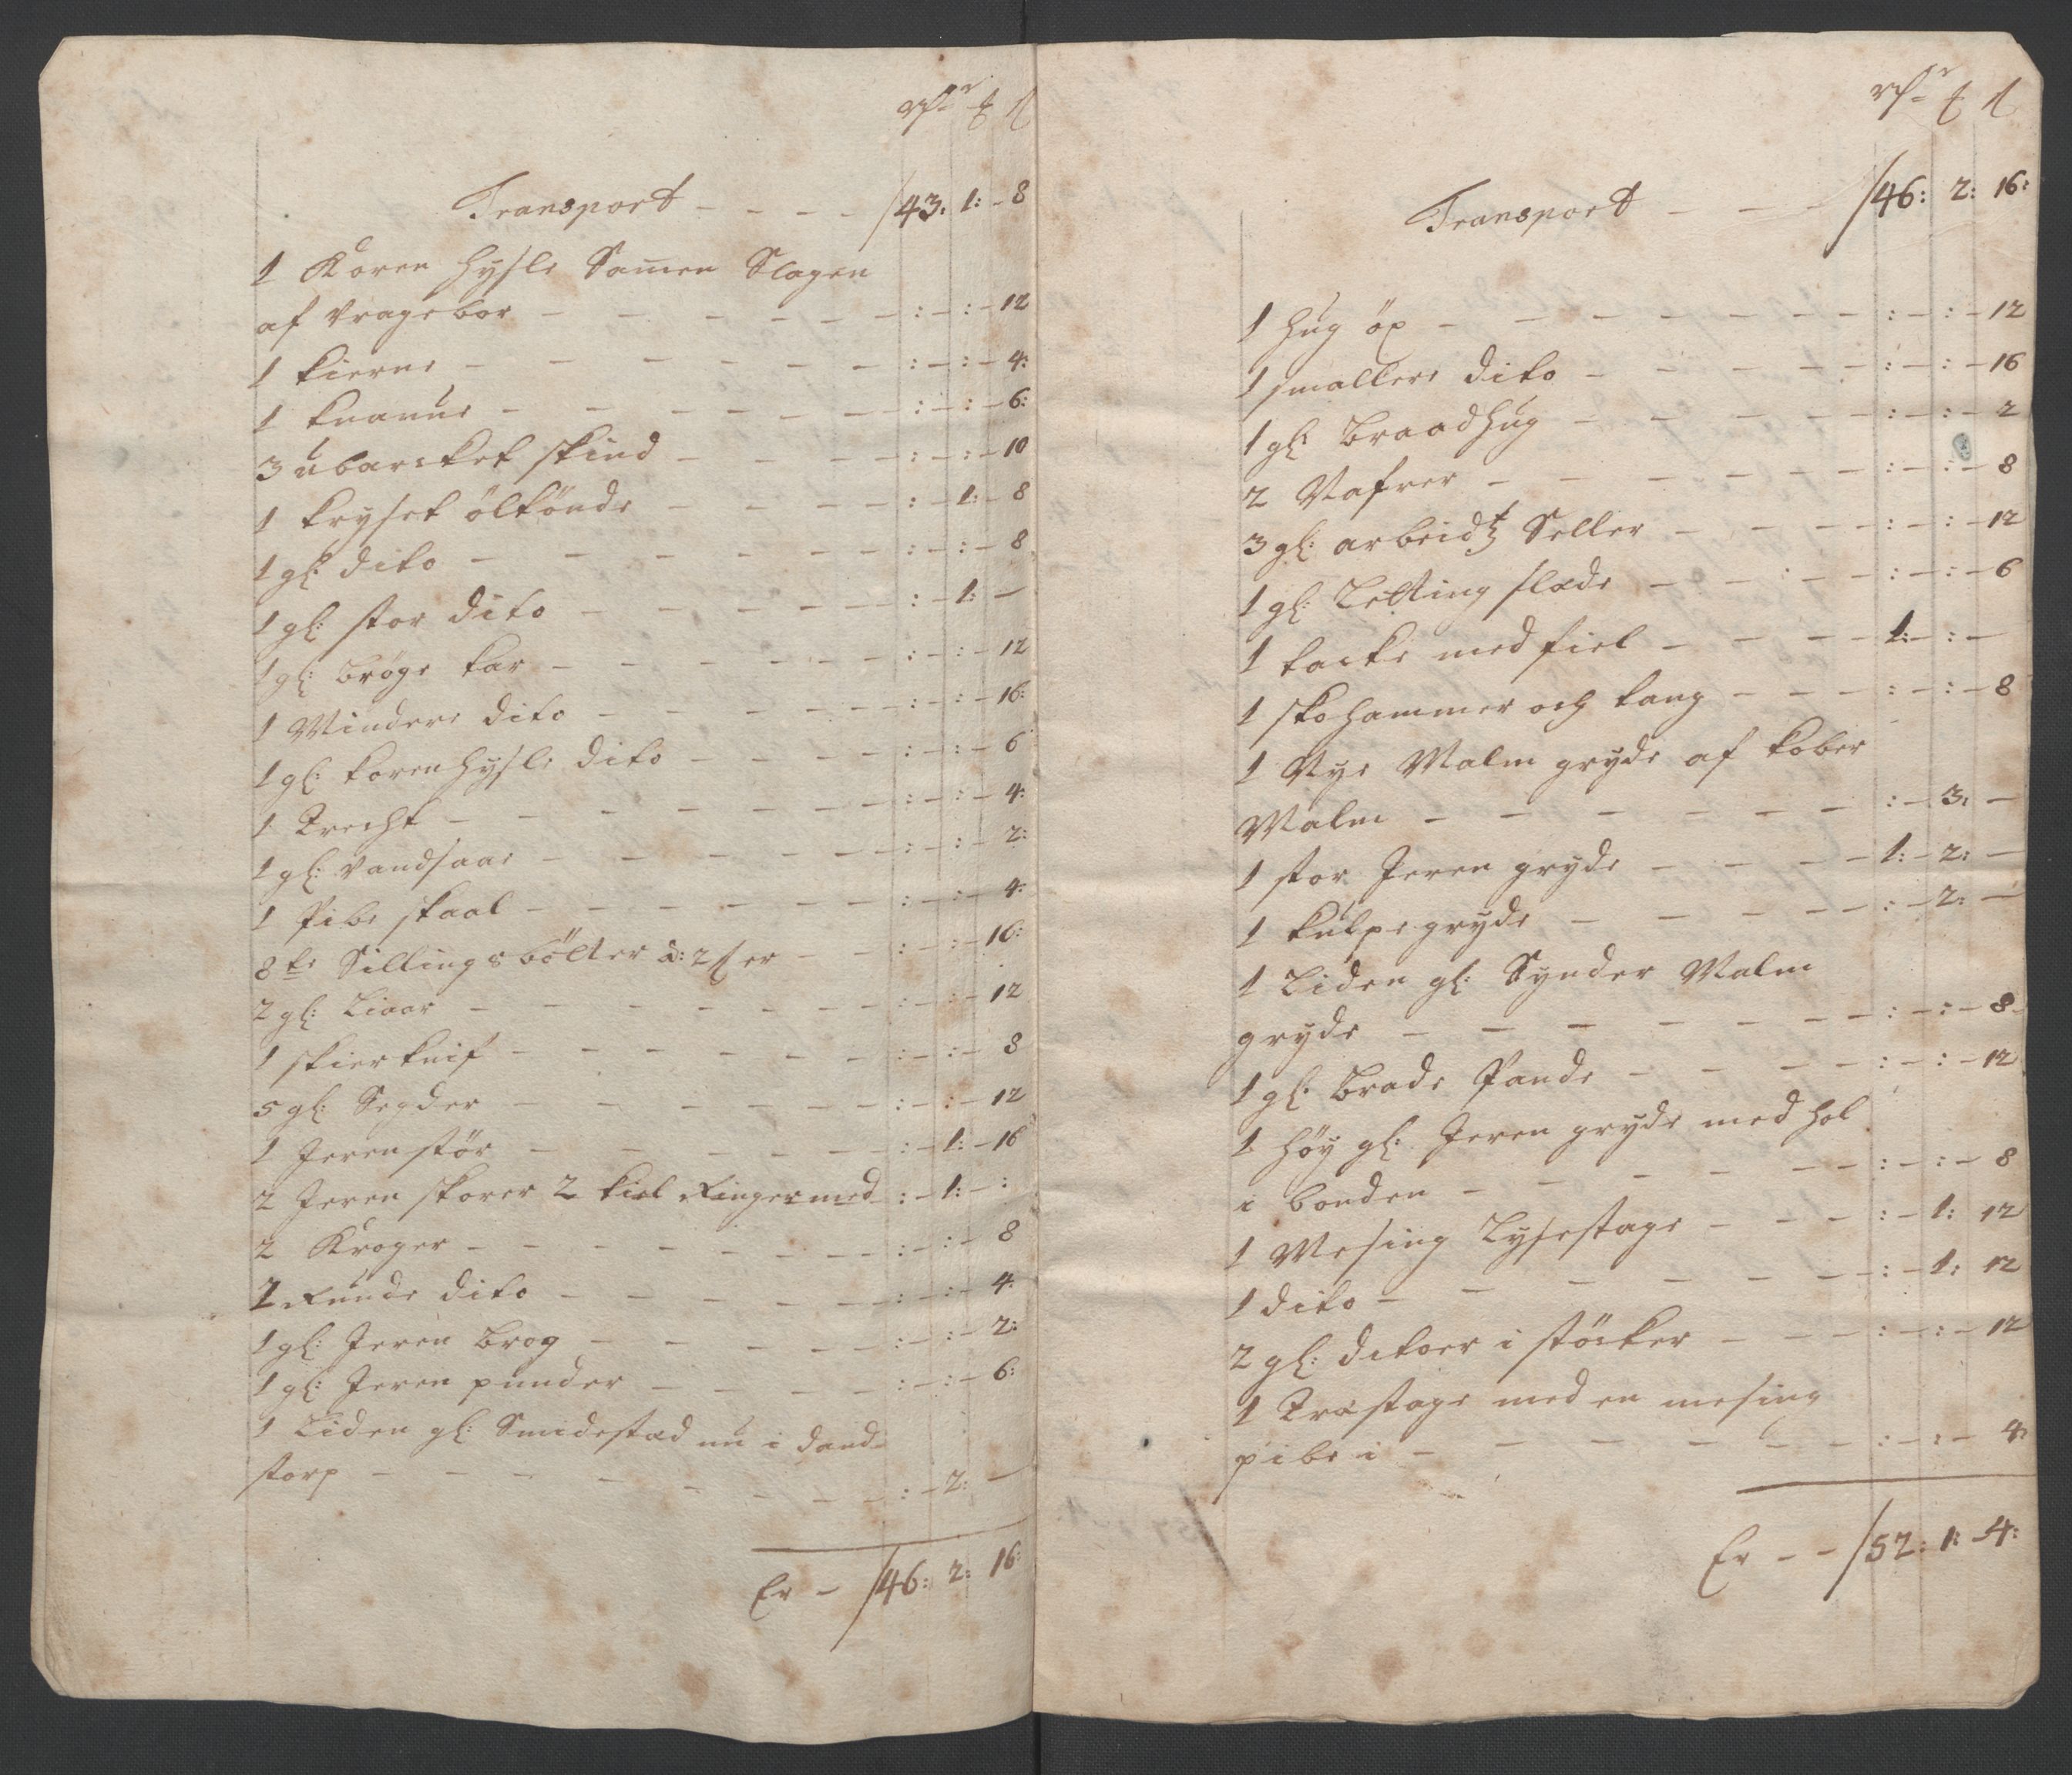 rdr ƒ ß
Transport - - - - /43: 1: - 8
1 Koren hysle Samen Slagen
af vragebor - - - - - : - : - 12
1 kierne - - - - - : - : - 4:
1 knarue - - - - - : - : - 6:
3 ubarcket skind - - - - : - : - 10
1 kryset öltönde - - - - : - 1: - 8
1 gl: dito - - - - - : - : - 8
1 gl: stor dito - - - - : - 1: -
1 gl: bröge kar - - - - : - : - 12
1 Mindere dito - - - - : - : - 16:
1 gl: korenhysle dito - - - : - : - 6
1 Trecht - - - - - : - : - 4:
1 gl: vandsaae - - - - : - : - 2:
1 Pibe skaal - - - - - : - : - 4:
8te Sillingsbölter à: 2 ß er - - : - : - 16:
2 gl: Liaar - - - - - : - : - 12
1 skierknif - - - - - : - : - 8
5 gl: Segder - - - - - : - : - 12
1 Jeren stör - - - - - : - 1: - 16
2 Jeren skorer 2 kiel Ringer med : - 1: - :
2 Kroger - - - - - : - : - 8
2 Runde dito - - - - - : - : - 4:
1 gl: Jeren brog - - - - : - : - 2:
1 gl: Jeren punder - - - - : - : - 6:
1 Liden gl: Smidestæd nu i dand-
storp - - - - - : - 2: -
Er - /46: 2: 16:
rdr ƒ ß
Transport - - - /46: 2: 16:
1 hug öx - - - - - : - : - 12
1 smallere dito - - - - : - : - 16
1 gl: braadhug - - - - : - : - 2
2 Nafrer - - - - - : - : - 8
3 gl: arbeidtz Seller - - - : - : - 12
1 gl: Letting slæde - - - : - : - 6
1 tacke med fiel - - - - 1: - : -
1 skohammer och tang - - - : - : - 8
1 Nye Malm gryde af kober
Malm - - - - - : - 3: -
1 stor Jeren gryde - - - 1: - 2: -
1 kulpe gryde - - - - : - 2: -
1 Liden gl: Synder Malm
gryde - - - - - : - : - 8
1 gl: brade Pande - - - : - : - 12
1 höy gl: Jeren gryde med hol
i bonden - - - - - : - : - 8
1 Mesing Lysestage - - - : - 1: 12
1 dito - - - - - : - 1: 12
2 gl: ditoer i stöcker - - - : - : - 12
1 Træstage med en mesing
pibe i - - - - - : - : - 4:
Er - - /52: 1: - 4: